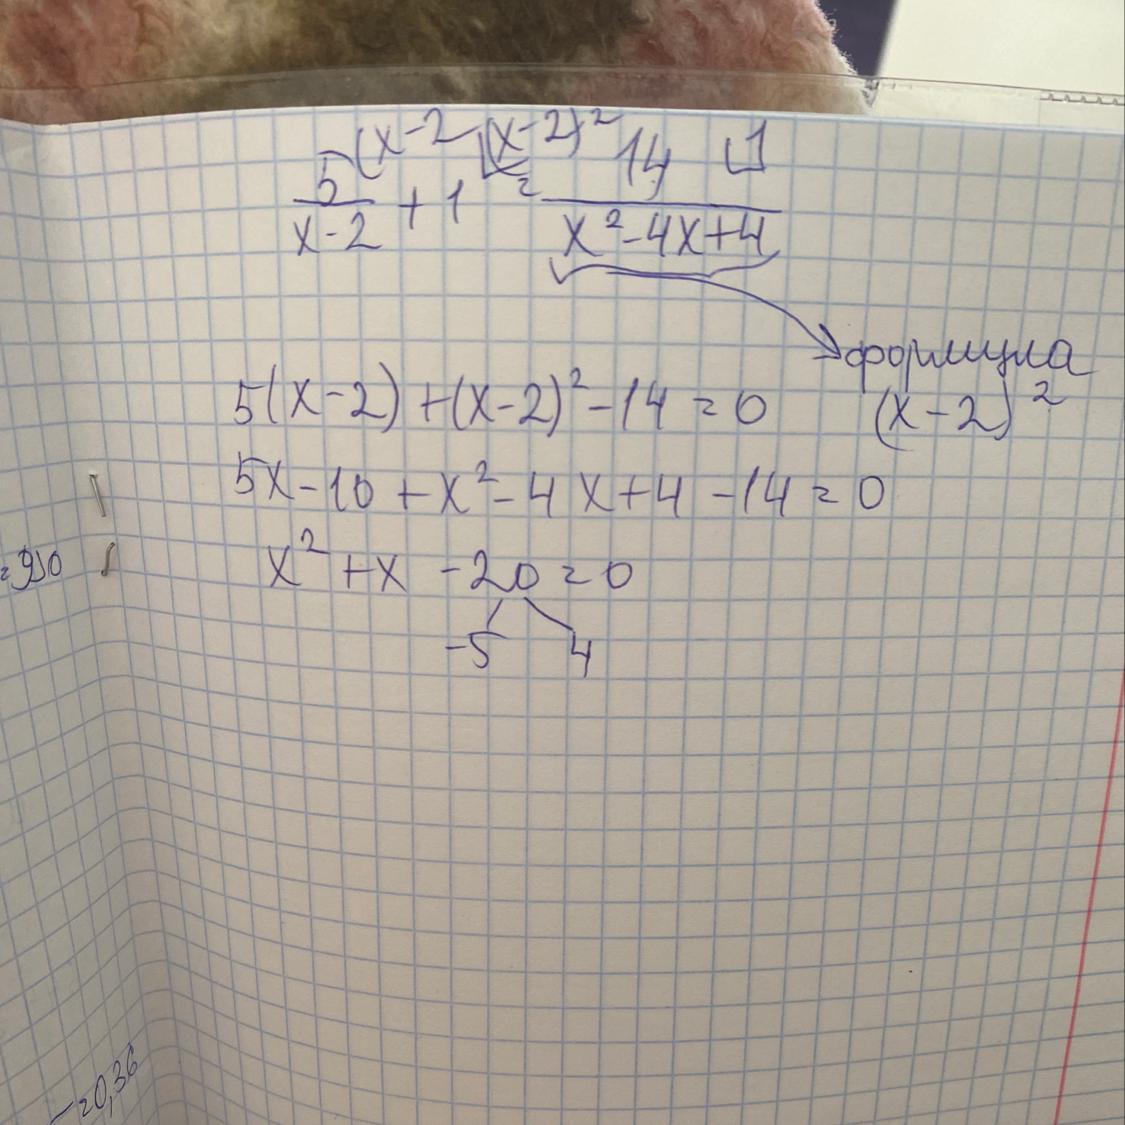 5(x-2 (x-2)² 14 1
x-2 + 1 = x²-4x+4
формула
5(x-2)+(x-2)²-14=0 (x-2)²
5x-10+x²-4x+4-14=0
x²+x-20=0
-5 4
=0,36